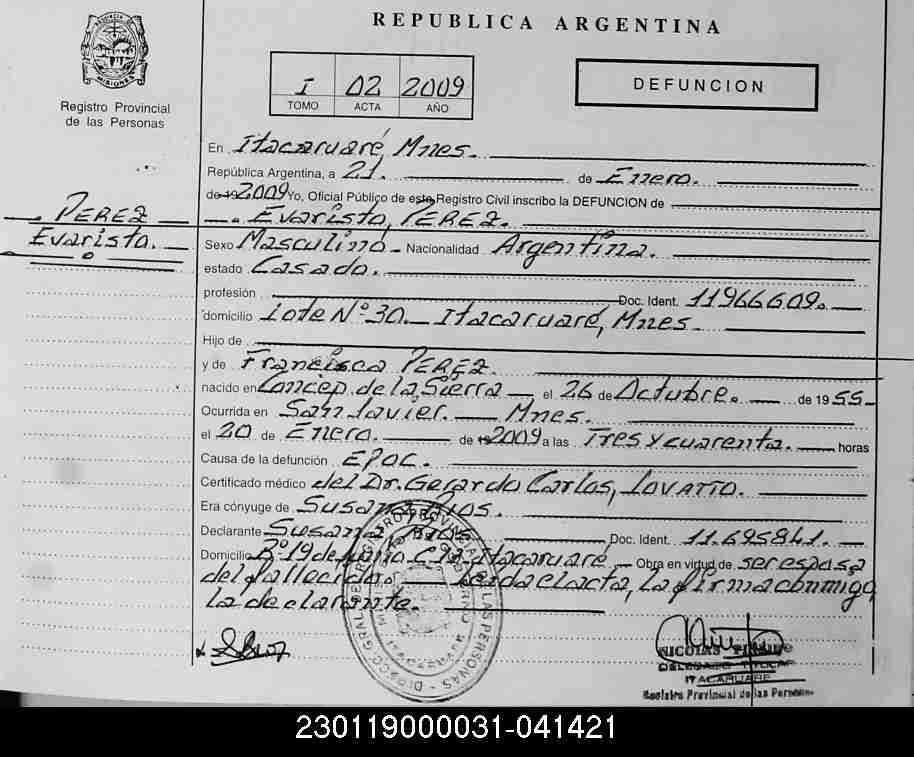 REPUBLICA ARGENTINA
PROVINCIA DE MISIONES
Registro Provincial
de las Personas
I 02 2009
TOMO ACTA AÑO
DEFUNCION
En Itacaruaré, Mnes.
República Argentina, a 21. de Enero.
de 19 2009 Yo, Oficial Público de este Registro Civil inscribo la DEFUNCION de
PEREZ
Evaristo.
Evaristo, PEREZ.
Sexo Masculino Nacionalidad Argentina.
estado Casado.
profesión Doc. Ident. 11966609.
domicilio Lote Nº 30. Itacaruaré, Mnes.
Hijo de
y de Francisca PEREZ.
nacido en Concep. de la Sierra el 26 de Octubre. de 1955
Ocurrida en San Javier. Mnes.
el 20 de Enero. de 19 2009 a las Tres y cuarenta. horas
Causa de la defunción EPOC.
Certificado médico del Dr. Gerardo Carlos, LOVATTO.
Era cónyuge de Susana, Rios.
Declarante Susana, Doc. Ident. 11.695841.
Domicilio Bº 19 de Itacaruaré Obra en virtud de ser esposa
del fallecido. Leída el acta, la firma conmigo
la declarante.
DIRECC. GRAL. DEL REGISTRO PROVINCIAL DE LAS PERSONAS
NICOLAS
DELEGADO TITULAR
ITACARUARE
Registro Provincial de las Personas
230119000031-041421